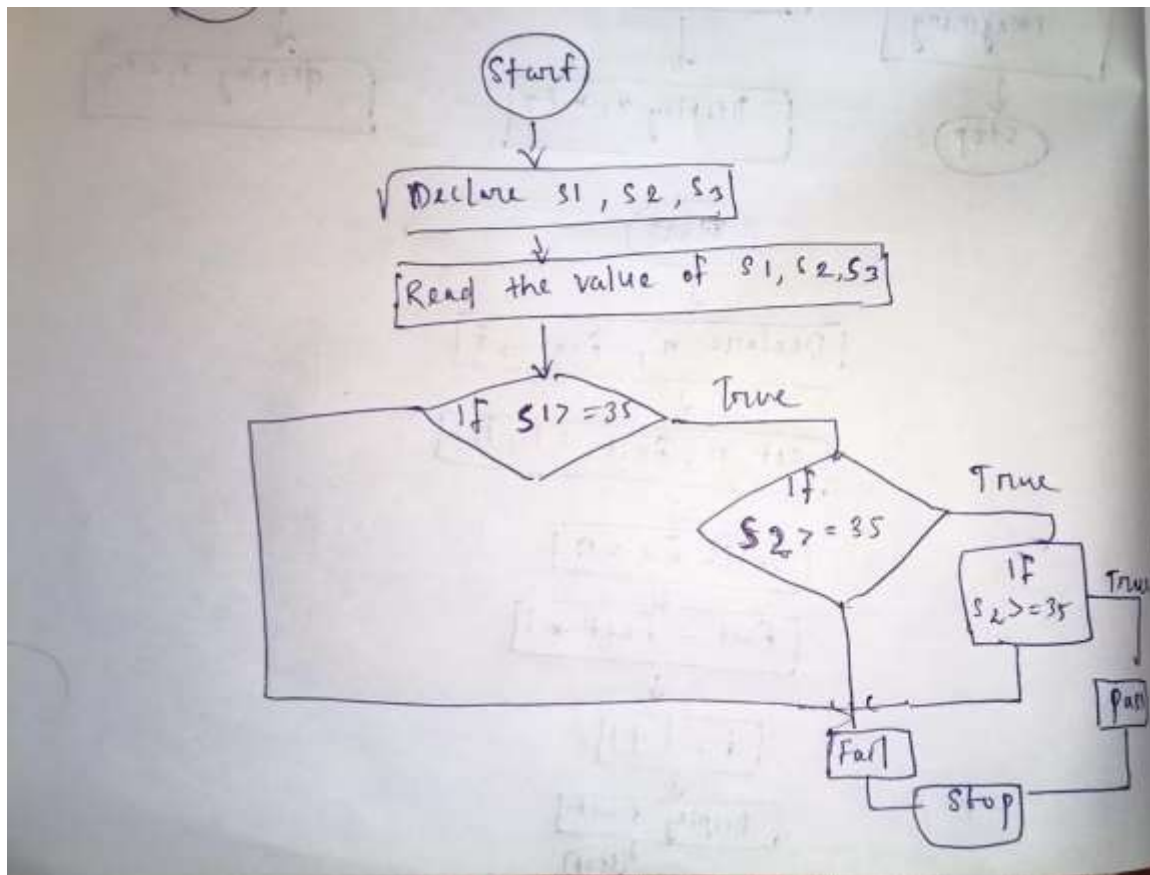 Start
Declare S1, S2, S3
Read the value of S1, S2, S3
If S1>=35
True
If
S2>=35
True
If
S2>=35
True
Pass
Fail
Stop